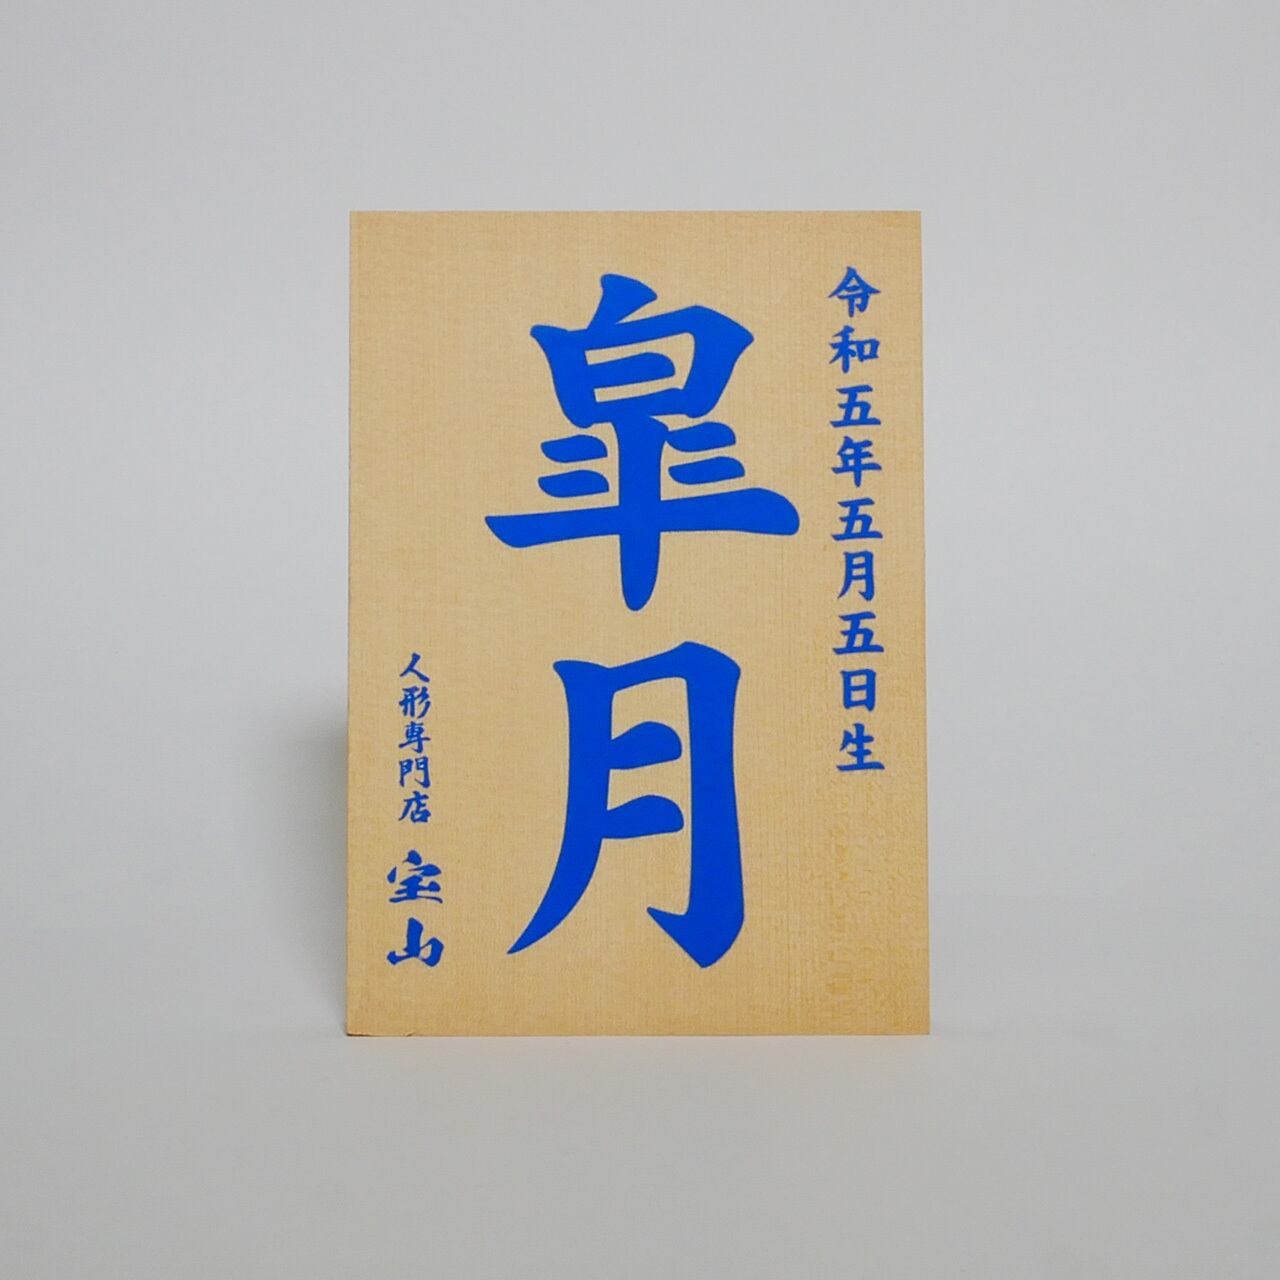 令和五年五月五日生
皐月
人形専門店 宝山